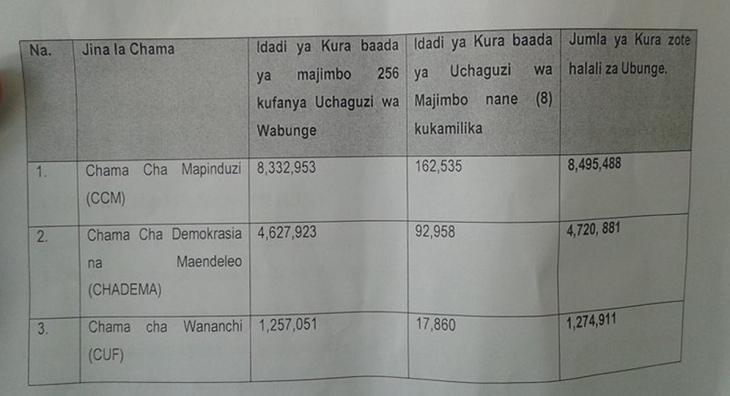 Na.
Jina la Chama
Idadi ya Kura baada
ya majimbo 256
kufanya Uchaguzi wa
Wabunge
Idadi ya Kura baada
ya Uchaguzi wa
Majimbo nane (8)
kukamilika
Jumla ya Kura zote
halali za Ubunge.
1.
Chama Cha Mapinduzi
(CCM)
8,332,953
162,535
8,495,488
2.
Chama Cha Demokrasia
na Maendeleo
(CHADEMA)
4,627,923
92,958
4,720, 881
3.
Chama cha Wananchi
(CUF)
1,257,051
17,860
1,274,911